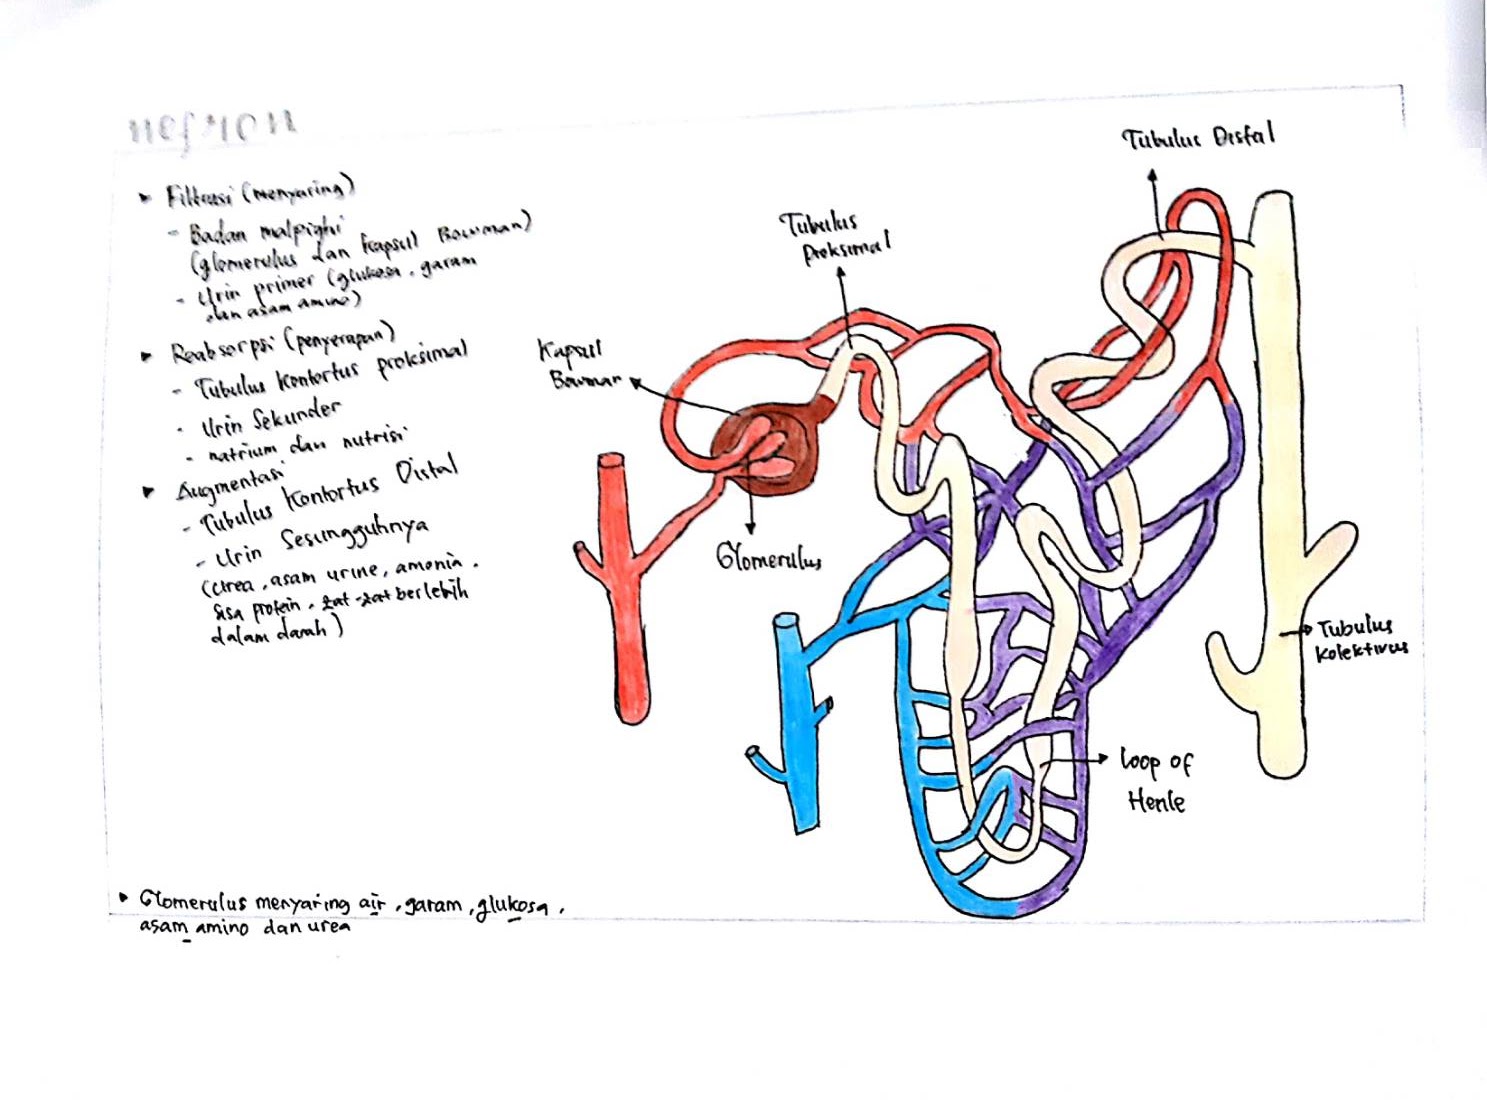 nefron
▸ Filtrasi (menyaring)
- Badan malpighi
(glomerulus dan kapsul Bowman)
- Urin primer (glukosa, garam
dan asam amino)
▸ Reabsorpsi (penyerapan)
- Tubulus Kontortus proksimal
- Urin Sekunder
- natrium dan nutrisi
▸ Augmentasi
- Tubulus Kontortus Distal
- Urin Sesungguhnya
(Urea, asam urine, amonia,
sisa protein, zat-zat berlebih
dalam darah)
▸ Glomerulus menyaring air, garam, glukosa,
asam amino dan urea
Tubulus Distal
Tubulus
proksimal
Kapsul
Bowman
Glomerulus
Tubulus
Kolektivus
Loop of
Henle